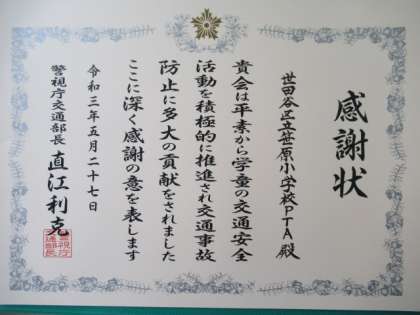 感謝状
世田谷区立笹原小学校PTA 殿
貴会は平素から学童の交通安全
活動を積極的に推進され交通事故
防止に多大の貢献をされました
ここに深く感謝の意を表します
令和三年五月二十七日
警視庁交通部長 直江利克
警視庁交通部長